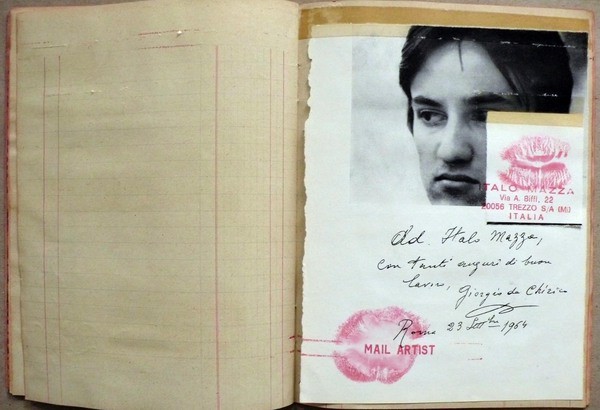 ITALO MAZZA
Via A. Biffi, 22
20056 TREZZO S/A (MI)
ITALIA
Ad. Italo Mazza,
con tanti auguri di buon
lavoro, Giorgio de Chirico
Roma 23 Settbre 1964
MAIL ARTIST